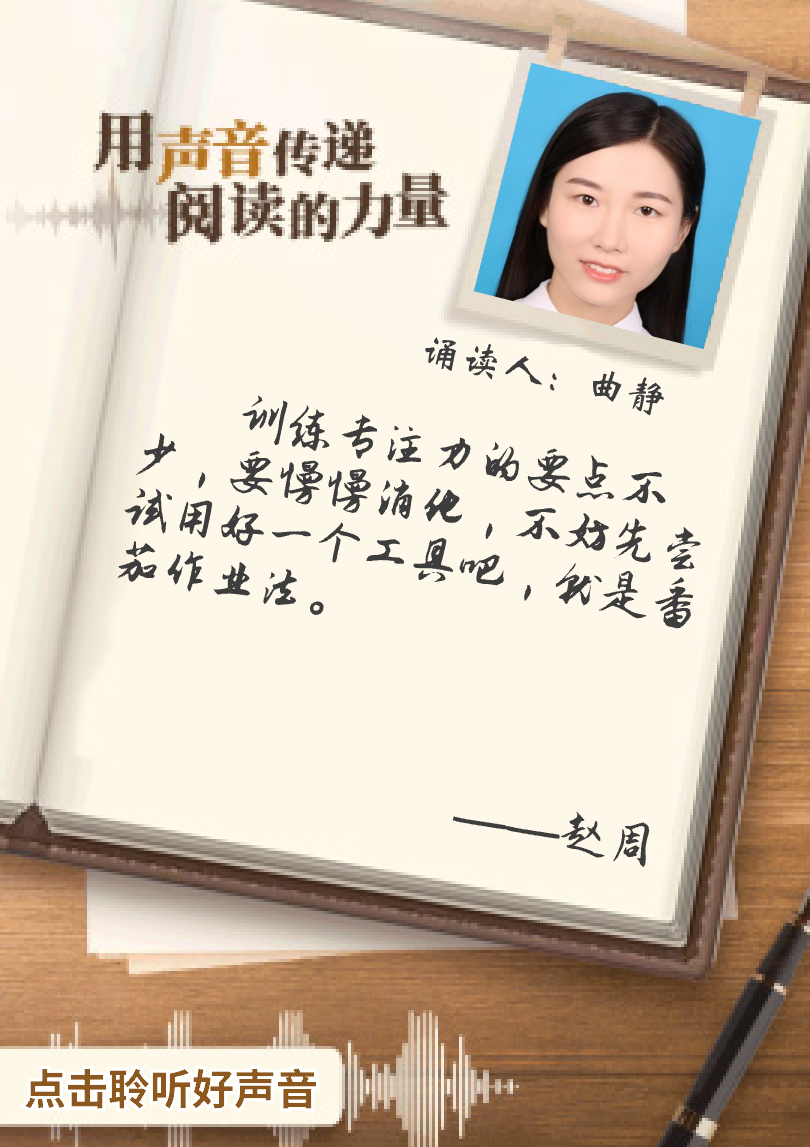 用声音传递
阅读的力量
诵读人：曲静
训练专注力的要点不
少，要慢慢消化，不妨先尝
试用好一个工具吧，就是番
茄作业法。
——赵周
点击聆听好声音